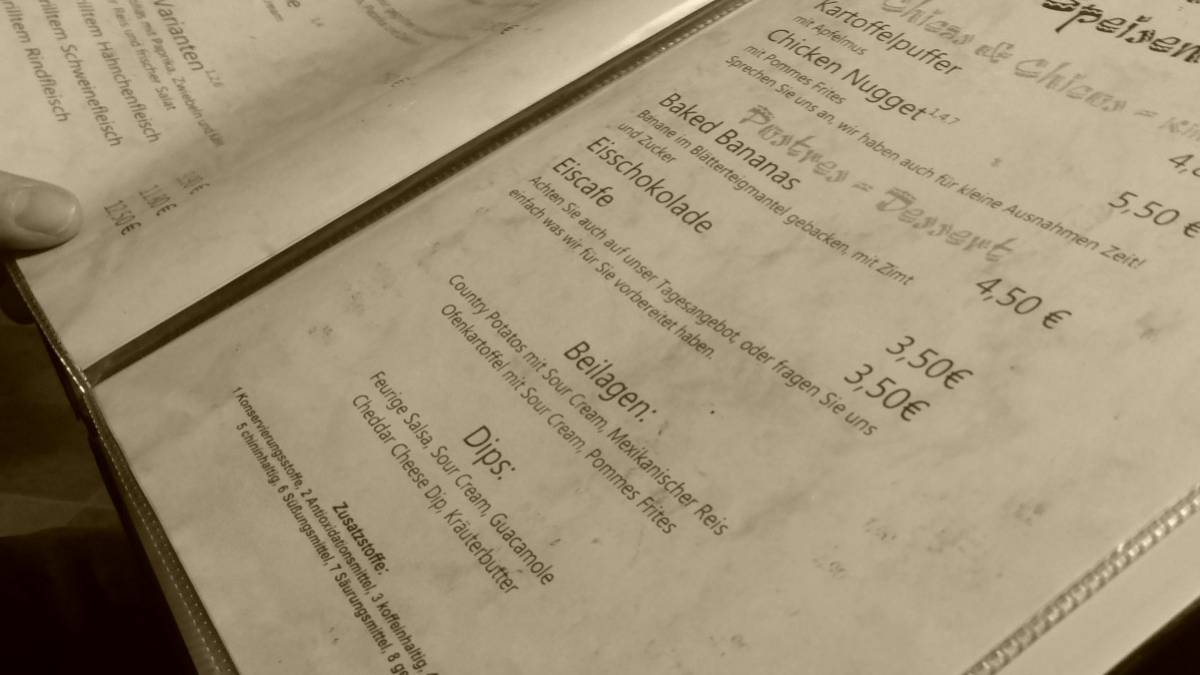 Varianten 1,2,6
mit Paprika, Zwiebeln und
Reis und frischer Salat
Hähnchenfleisch
Schweinefleisch
Rindfleisch
11,80 €
12,50 €
Speisen
Chicas & Chicos =
Kartoffelpuffer
mit Apfelmus
Chicken Nugget 1,4,7
5,50 €
mit Pommes Frites
Sprechen Sie uns an, wir haben auch für kleine Ausnahmen Zeit!
Postres = Dessert
Baked Bananas 4,50 €
Banane im Blätterteigmantel gebacken, mit Zimt
und Zucker
Eisschokolade 3,50€
Eiscafe 3,50€
Achten Sie auch auf unser Tagesangebot, oder fragen Sie uns
einfach was wir für Sie vorbereitet haben.
Beilagen:
Country Potatos mit Sour Cream, Mexikanischer Reis
Ofenkartoffel mit Sour Cream, Pommes Frites
Dips:
Feurige Salsa, Sour Cream, Guacamole
Cheddar Cheese Dip, Kräuterbutter
Zusatzstoffe:
1 Konservierungsstoffe, 2 Antioxidationsmittel, 3 koffeinhaltig,
5 chininhaltig, 6 Süßungsmittel, 7 Säurungsmittel, 8